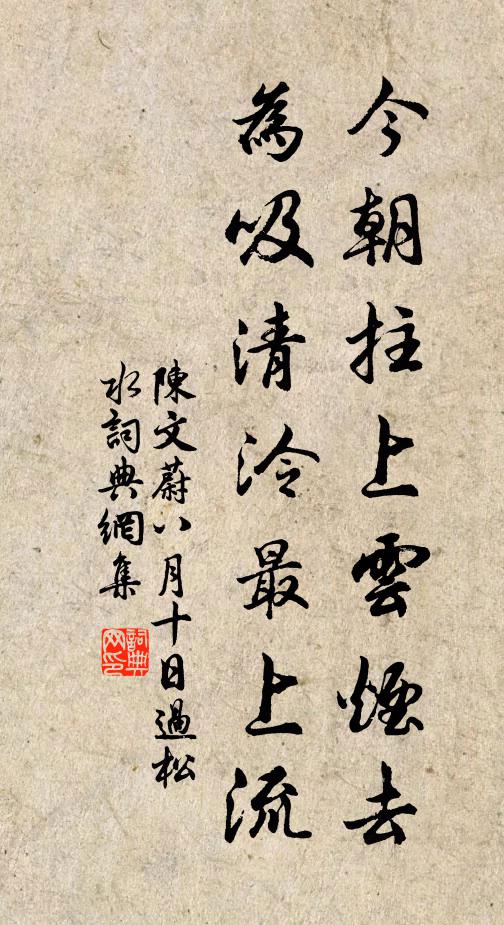 今朝拄上雲煙去
為吸清泠最上流
陳文蔚八月十日過松
水詞典網集
詞典网印